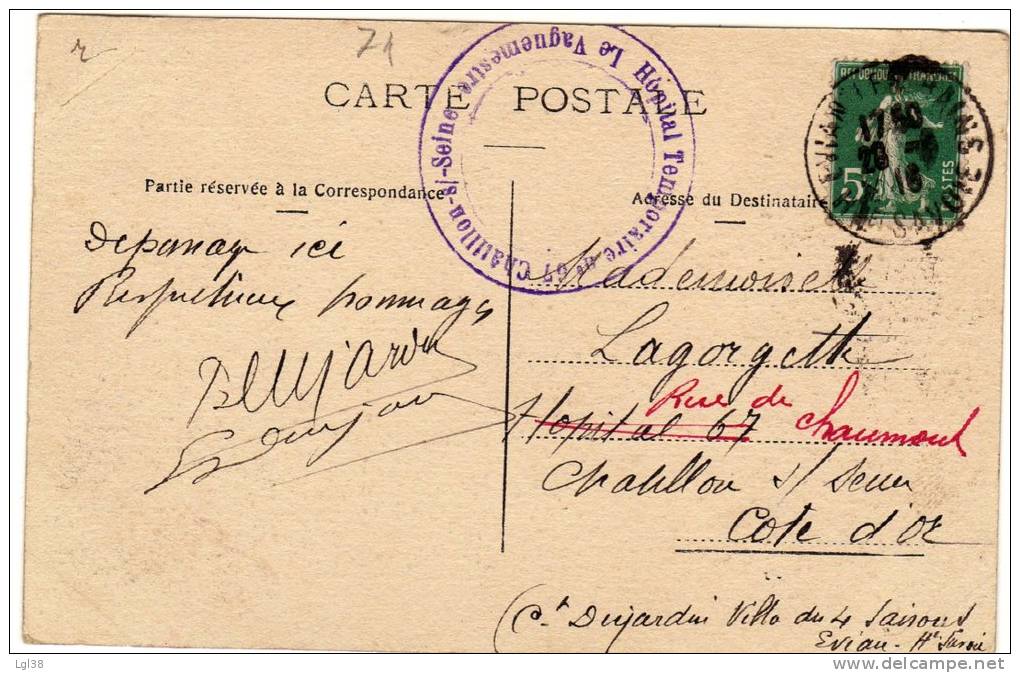 71
CARTE POSTALE
Hôpital Temporaire n° 67 Châtillon-s/-Seine
Le Vaguemestre
REPUBLIQUE FRANÇAISE
5c
POSTES
EVIAN-LES-BAINS
1750
20
16
HTE SAVOIE
Partie réservée à la Correspondance
Adresse du Destinataire
De passage ici
Respectueux hommages
Dujardin
Mademoiselle
Lagorgette
Hopital 67
Rue de
Chaumont
Chatillon s/ Seine
Cote d'Or
(Ct Dujardin Villa du 4 Saisons
Evian - Hte Savoie
Lgl38
delcampe.net